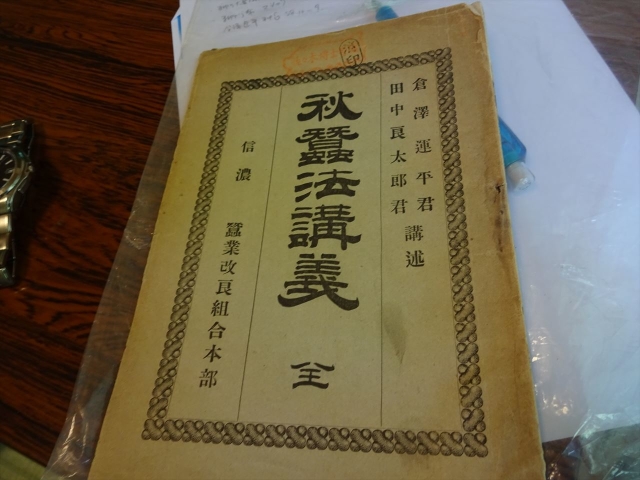 倉澤運平君
田中良太郎君
講述
秋蠶法講義
全
信濃
蠶業改良組合本部